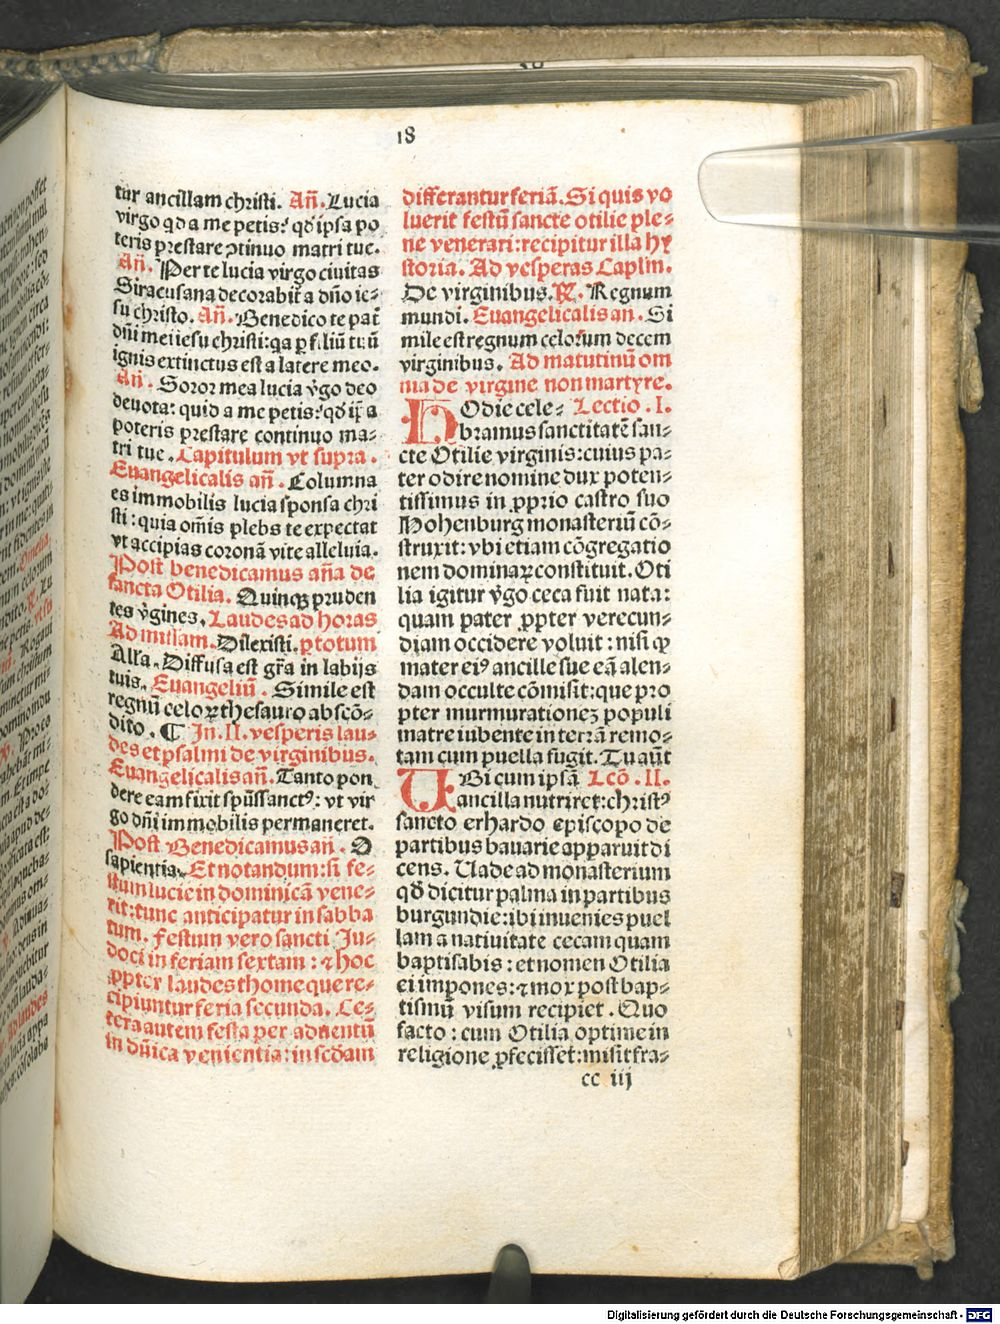 18
tur ancillam christi. An̄. Lucia
virgo qd a me petis: qd̄ ipsa po
teris prestare ɔtinuo matri tue.
An̄. Per te lucia virgo ciuitas
Siracusana decorabit̄ a dn̄o ie⸗
su christo. An̄. Benedico te pat̄
dn̄i mei iesu christi: qa ꝑ filiū tuū
ignis extinctus est a latere meo.
An̄. Soror mea lucia v̄go deo
deuota: quid a me petis: qd̄ ip̄a
poteris prestare continuo ma⸗
tri tue. Capitulum vt supra.
Euangelicalis an̄. Columna
es immobilis lucia sponsa chri
sti: quia om̄is plebs te expectat
vt accipias coronā vite alleluia.
Post benedicamus an̄a de
sancta Otilia. Quinqꝫ pruden
tes v̄gines. Laudes ad horas
Ad missam. Dilexisti. ꝑ totum
Alla. Diffusa est gr̄a in labijs
tuis. Euangeliū. Simile est
regnū celoꝝ thesauro abscō⸗
dito. ¶ In. II. vesperis lau⸗
des et psalmi de virginibus.
Euangelicalis an̄. Tanto pon
dere eam fixit spūssanctꝰ: vt vir
go dn̄i immobilis permaneret.
Post Benedicamus an̄. O
sapientia. Et notandum: si fe⸗
stum lucie in dominicā vene⸗
rit: tunc anticipatur in sabba
tum. Festum vero sancti Ju⸗
doci in feriam sextam: ⁊ hoc
ꝓpter laudes thome que re⸗
cipiuntur feria secunda. Ce⸗
tera autem festa per aduentū
in dn̄ica venientia: in scd̄am
differantur feriā. Si quis vo
luerit festū sancte otilie ple⸗
ne venerari: recipitur illa hy
storia. Ad vesperas Caplm̄.
De virginibus. ℟. Regnum
mundi. Euangelicalis an. Si
mile est regnum celorum decem
virginibus. Ad matutinū om
nia de virgine non martyre.
HOdie cele⸗ Lectio. I.
bramus sanctitatē san⸗
cte Otilie virginis: cuius pa⸗
ter odire nomine dux poten⸗
tissimus in ꝓprio castro suo
Hohenburg monasteriū cō⸗
struxit: vbi etiam cōgregatio
nem dominaꝝ constituit. Oti
lia igitur v̄go ceca fuit nata:
quam pater ꝓpter verecun⸗
diam occidere voluit: nisi ꝙ
mater eiꝰ ancille sue eā alen⸗
dam occulte cōmisit: que pro
pter murmurationeꝫ populi
matre iubente in terrā remo⸗
tam cum puella fugit. Tu aūt
VBi cum ipsā Lcō. II.
ancilla nutriret: christꝰ
sancto erhardo episcopo de
partibus bauarie apparuit di
cens. Uade ad monasterium
qd̄ dicitur palma in partibus
burgundie: ibi inuenies puel
lam a natiuitate cecam quam
baptisabis: et nomen Otilia
ei impones: ⁊ mox post bap⸗
tismū visum recipiet. Quo
facto: cum Otilia optime in
religione ꝓfecisset: misit fra⸗
cc iij
Digitalisierung gefördert durch die Deutsche Forschungsgemeinschaft - DFG